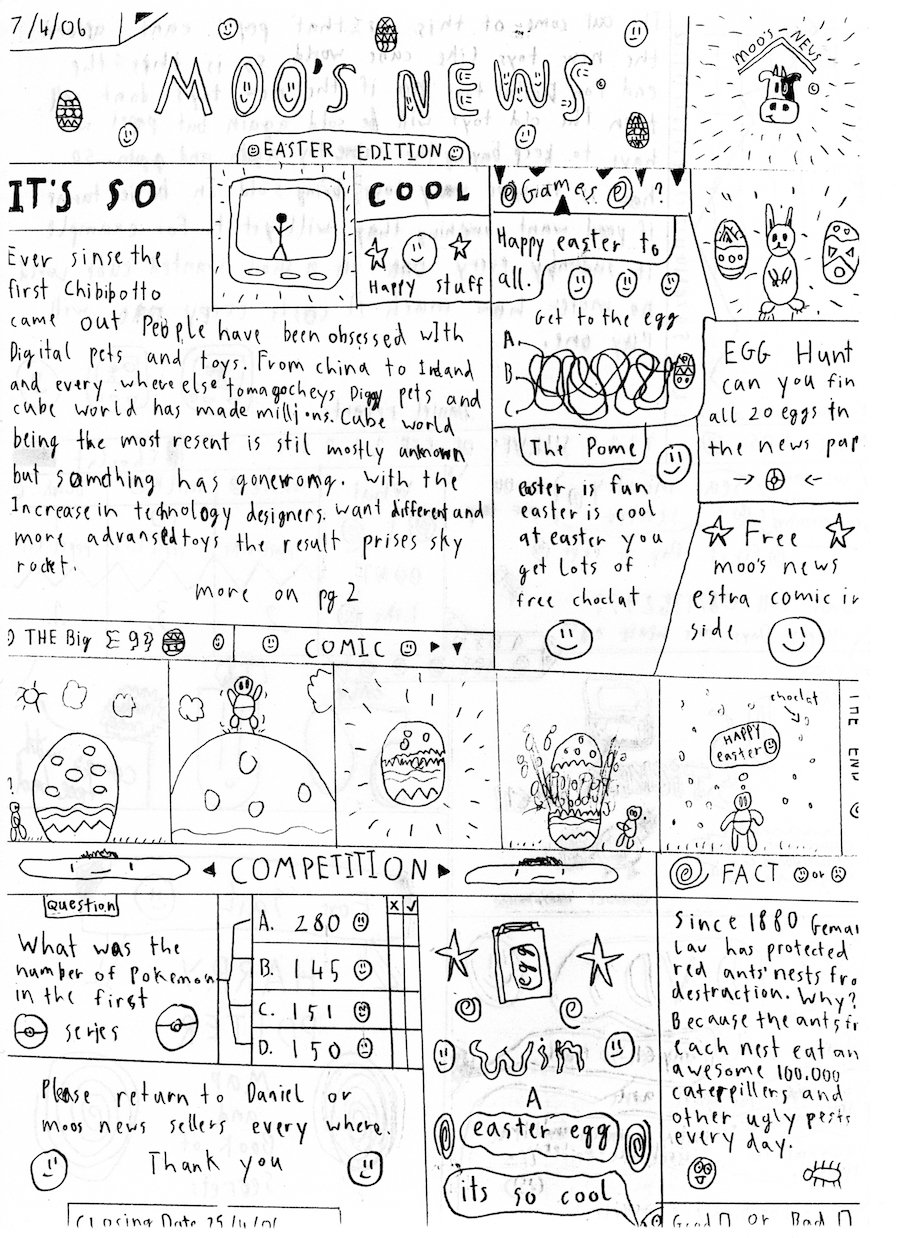 7/4/06
MOO'S NEWS
MOO'S NEWS
EASTER EDITION
IT'S SO COOL
Happy stuff
Ever sinse the
first Chibipotto
came out People have been obsessed with
Digital pets and toys. From china to Ireland
and every where else tomagocheys Diggy pets and
cube world has made millions. Cube world
being the most resent is stil mostly unknown
but somthing has gone wrong. with the
Increase in technology designers. want different and
more advansed toys the result prises sky
rocket.
more on pg 2
Games ?
Happy easter to
all.
Get to the egg
A.
B.
C.
The Pome
easter is fun
easter is cool
at easter you
get lots of
free choclat
EGG Hunt
can you fin
all 20 eggs in
the news pap
Free
moo's news
estra comic in
side
THE Big Egg
COMIC
!
choclat
HAPPY
easter
THE END
COMPETITION
Question
What was the
number of Pokemon
in the first
series
X ✓
A. 280
B. 145
C. 151
D. 150
Please return to Daniel or
moos news sellers every where.
Thank you
Closing Date 25/4/06
egg
Win
A
easter egg
its so cool
FACT or
Since 1880 Gemar
Law has protected
red ants' nests fro
destraction. Why?
Because the ants fr
each nest eat an
awesome 100.000
caterpillers and
other ugly pests
every day.
Good or Bad